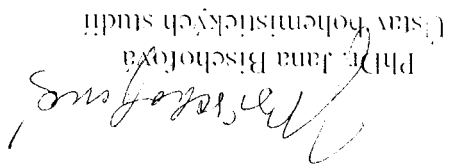 Bischofová
PhDr. Jana Bischofová
Ústav bohemistických studií